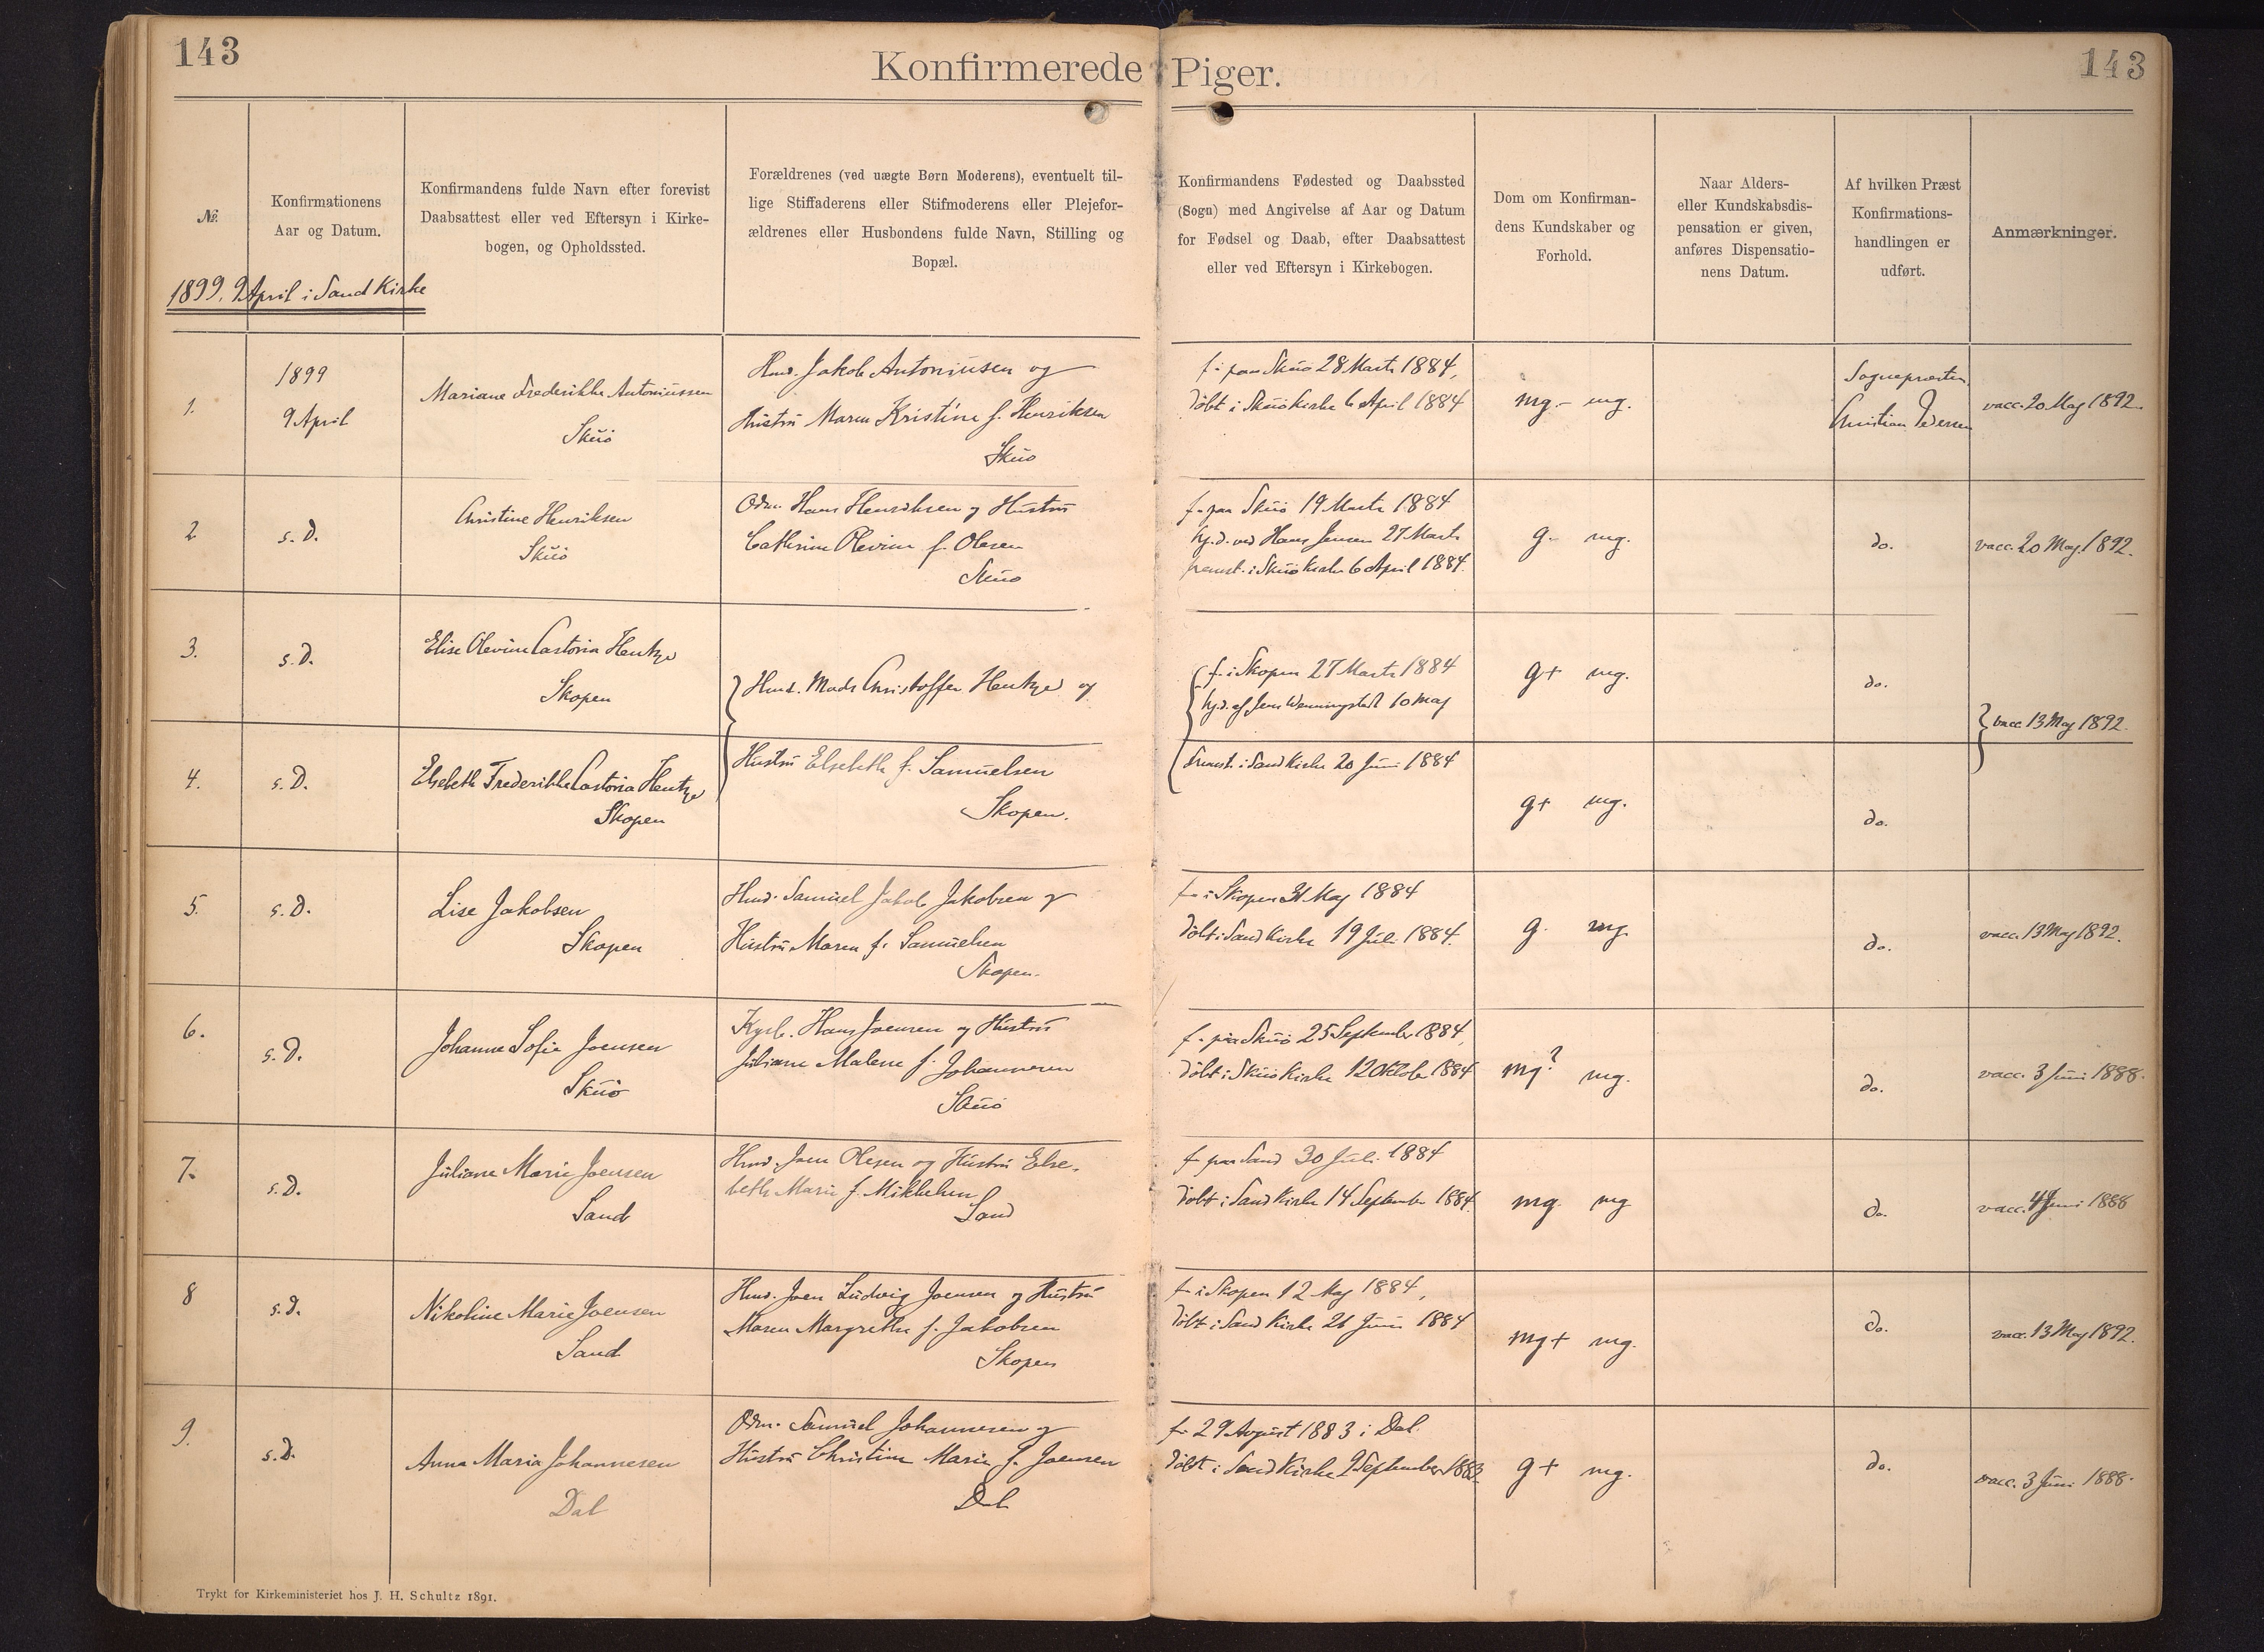 143
Konfirmerede Piger.
143
№
Konfirmationens
Aar og Datum.
Konfirmandens fulde Navn efter forevist
Daabsattest eller ved Eftersyn i Kirke-
bogen, og Opholdssted.
Forældrenes (ved uægte Børn Moderens), eventuelt til-
lige Stiffaderens eller Stifmoderens eller Plejefor-
ældrenes eller Husbondens fulde Navn, Stilling og
Bopæl.
Konfirmandens Fødested og Daabssted
(Sogn) med Angivelse af Aar og Datum
for Fødsel og Daab, efter Daabsattest
eller ved Eftersyn i Kirkebogen.
Dom om Konfirman-
dens Kundskaber og
Forhold.
Naar Alders-
eller Kundskabsdis-
pensation er given,
anføres Dispensatio-
nens Datum.
Af hvilken Præst
Konfirmations-
handlingen er
udført.
Anmærkninger.
1899. 9 April i Sand Kirke
1.
1899
9 April
Mariane Frederikke Antoniussen
Skúö
Hmd. Jakob Antoniusen og
Hustrú Maren Kristine f. Henriksen
Skúö
f. paa Skúö 28 Marts 1884,
döbt i Skúö Kirke 6 April 1884
mg.- mg.
Sognepræsten
Christian Pedersen
vacc. 20 Maj 1892.
2
s. D.
Christine Henriksen
Skúö
Odm. Hans Henriksen og Hustrú
Cathrine Olevine f. Olesen
Skúö
f. paa Skúö 19 Marts 1884
hj. d. ved Hans Jensen 27 Marts
fremst. i Skúö Kirke 6 April 1884.
g. mg.
do.
vacc. 20 Maj 1892.
3.
s. D.
Elise Olevine Castoria Hentze
Skopen
Hmd. Mads Christoffer Hentze og
f. i Skopen 27 Marts 1884
hj. d. af Jens Wenningstedt 10 Maj
g+ mg.
do.
vacc. 13 Maj 1892.
4.
s. D.
Elsebeth Frederikke Castoria Hentze
Skopen
Hustrú Elsebeth f. Samúelsen
Skopen.
Fremst. i Sand Kirke 20 Júni 1884
g+ mg.
do.
5.
s. D.
Lise Jakobsen
Skopen
Hmd. Samúel Jakob Jakobsen og
Hústrú Maren f. Samúelsen
Skopen.
f. i Skopen 31 Maj 1884
döbt i Sand Kirke 19 Júli 1884.
g. mg.
do.
vacc. 13 Maj 1892.
6.
s. D.
Johanne Sofie Joensen
Skúö
Hans Joensen og Hústrú
Júliane Malene f. Johannesen
Skúö
f. paa Skúö 25 September 1884,
döbt i Skúö Kirke 12 Oktober 1884
mg? mg.
do.
vacc. 3 Júni 1888.
7.
s. D.
Júliane Marie Joensen
Sand
Hmd. Joen Olesen og Hústrú Else-
beth Marie f. Mikkelsen
Sand
f. paa Sand 30 Júli 1884
döbt i Sand Kirke 14 September 1884.
mg. mg
do.
vacc. 4 Júni 1888
8
s. D.
Nikoline Marie Joensen
Sand
Hmd. Joen Lúdvig Joensen og Hústrú
Maren Margrethe f. Jakobsen
Skopen
f. i Skopen 12 Maj 1884,
döbt i Sand Kirke 26 Júni 1884
mg+ mg.
do.
vacc. 13 Maj 1892.
9.
s. D.
Anna Maria Johannesen
Dal
Odm. Samúel Johannesen og
Hústrú Christine Marie f. Joensen
Dal
f. 29 Avgúst 1883 i Dal
döbt i Sand Kirke 9 September 1883.
g+ mg.
do.
vacc. 3 Júni 1888.
Trykt for Kirkeministeriet hos J. H. Schultz 1891.